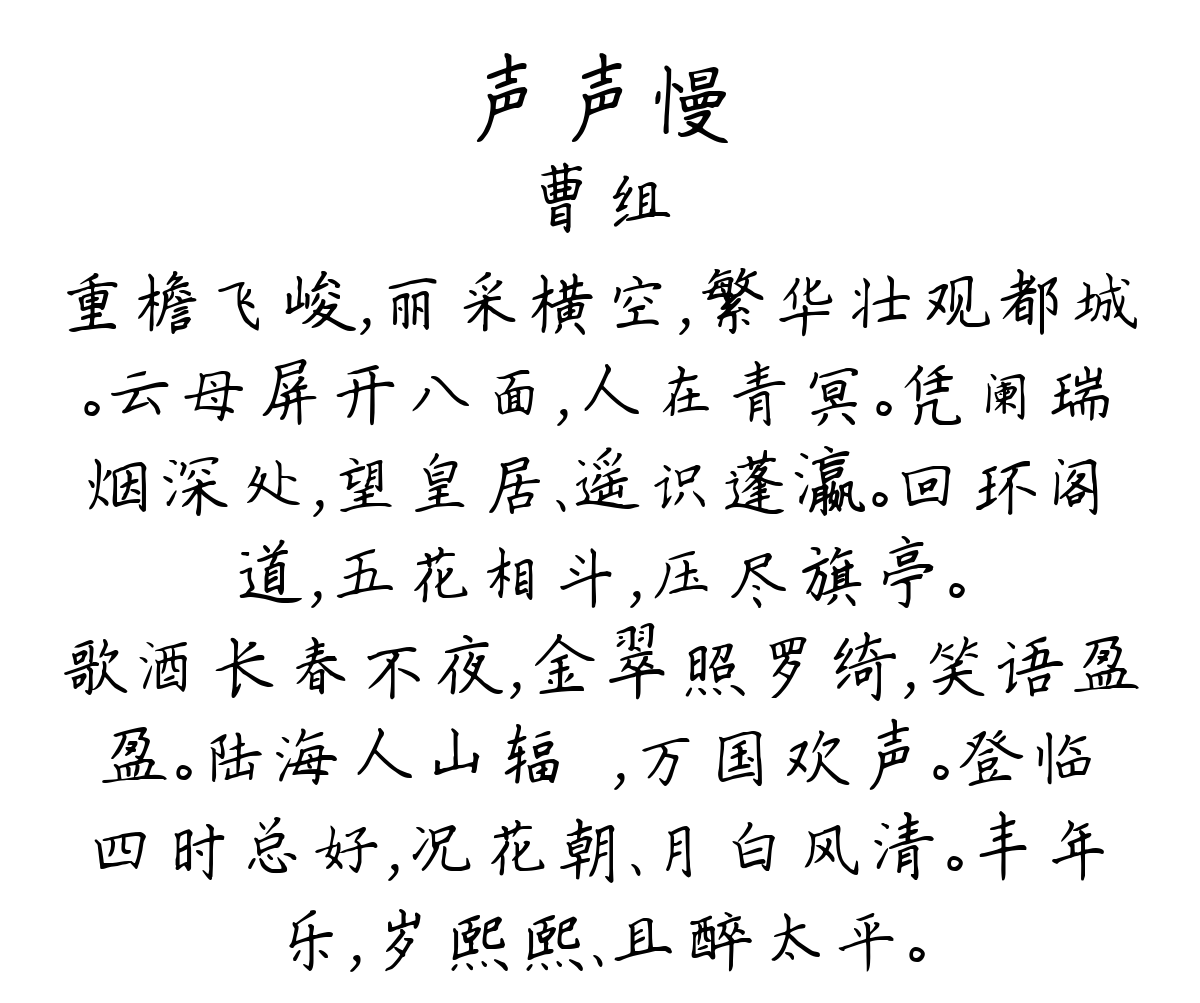 声声慢
曹组
重檐飞峻,丽采横空,繁华壮观都城
。云母屏开八面,人在青冥。凭阑瑞
烟深处,望皇居、遥识蓬瀛。回环阁
道,五花相斗,压尽旗亭。
歌酒长春不夜,金翠照罗绮,笑语盈
盈。陆海人山辐 ,万国欢声。登临
四时总好,况花朝、月白风清。丰年
乐,岁熙熙、且醉太平。